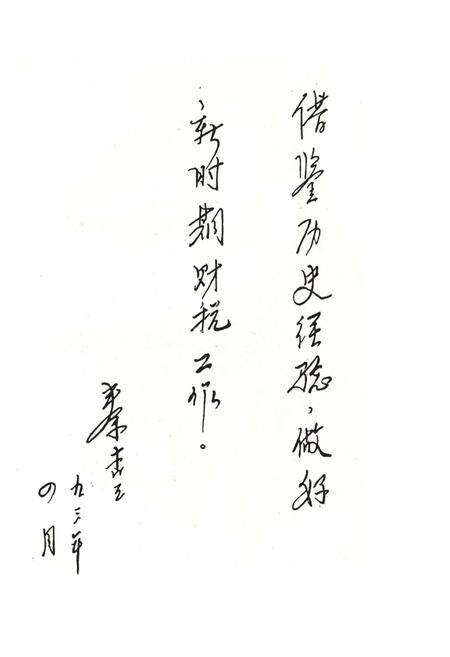 借鉴历史经验，做好
新时期财税工作。
秦
九三年
四月